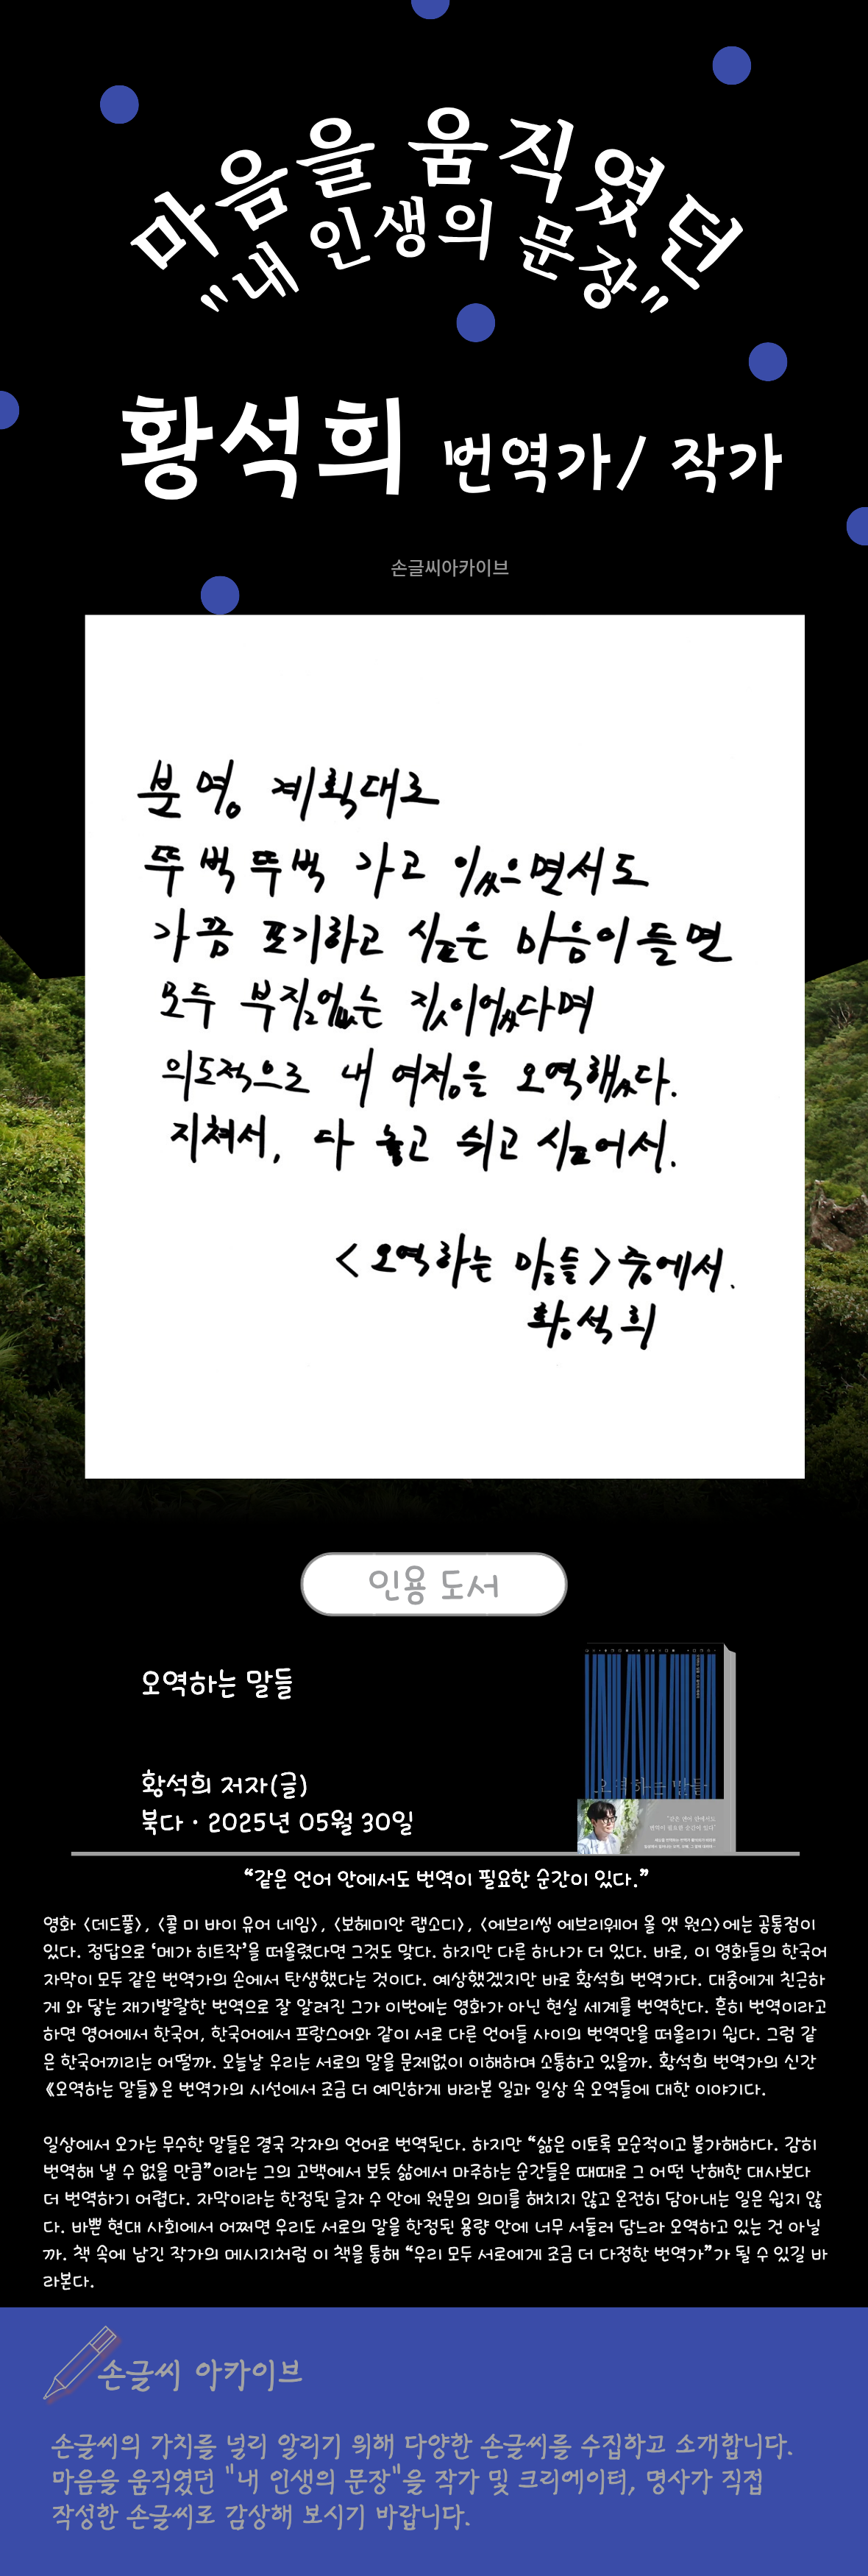 마음을 움직였던
"내 인생의 문장"
황석희 번역가/ 작가
손글씨아카이브
분명 계획대로
뚜벅뚜벅 가고 있으면서도
가끔 포기하고 싶은 마음이 들면
모두 부질없는 짓이었다며
의도적으로 내 여정을 오역했다.
지쳐서, 다 놓고 쉬고 싶어서.
<오역하는 말들> 중에서.
황석희
인용 도서
오역하는 말들
황석희 저자(글)
북다 · 2025년 05월 30일
오역하는 말들
"같은 언어 안에서도
번역이 필요한 순간이 있다"
“같은 언어 안에서도 번역이 필요한 순간이 있다.”
영화 〈데드풀〉, 〈콜 미 바이 유어 네임〉, 〈보헤미안 랩소디〉, 〈에브리씽 에브리웨어 올 앳 원스〉에는 공통점이
있다. 정답으로 ‘메가 히트작’을 떠올렸다면 그것도 맞다. 하지만 다른 하나가 더 있다. 바로, 이 영화들의 한국어
자막이 모두 같은 번역가의 손에서 탄생했다는 것이다. 예상했겠지만 바로 황석희 번역가다. 대중에게 친근하
게 와 닿는 재기발랄한 번역으로 잘 알려진 그가 이번에는 영화가 아닌 현실 세계를 번역한다. 흔히 번역이라고
하면 영어에서 한국어, 한국어에서 프랑스어와 같이 서로 다른 언어들 사이의 번역만을 떠올리기 쉽다. 그럼 같
은 한국어끼리는 어떨까. 오늘날 우리는 서로의 말을 문제없이 이해하며 소통하고 있을까. 황석희 번역가의 신간
《오역하는 말들》은 번역가의 시선에서 조금 더 예민하게 바라본 일과 일상 속 오역들에 대한 이야기다.
일상에서 오가는 무수한 말들은 결국 각자의 언어로 번역된다. 하지만 “삶은 이토록 모순적이고 불가해하다. 감히
번역해 낼 수 없을 만큼”이라는 그의 고백에서 보듯 삶에서 마주하는 순간들은 때때로 그 어떤 난해한 대사보다
더 번역하기 어렵다. 자막이라는 한정된 글자 수 안에 원문의 의미를 해치지 않고 온전히 담아내는 일은 쉽지 않
다. 바쁜 현대 사회에서 어쩌면 우리도 서로의 말을 한정된 용량 안에 너무 서둘러 담느라 오역하고 있는 건 아닐
까. 책 속에 남긴 작가의 메시지처럼 이 책을 통해 “우리 모두 서로에게 조금 더 다정한 번역가”가 될 수 있길 바
라본다.
손글씨 아카이브
손글씨의 가치를 널리 알리기 위해 다양한 손글씨를 수집하고 소개합니다.
마음을 움직였던 "내 인생의 문장"을 작가 및 크리에이터, 명사가 직접
작성한 손글씨로 감상해 보시기 바랍니다.